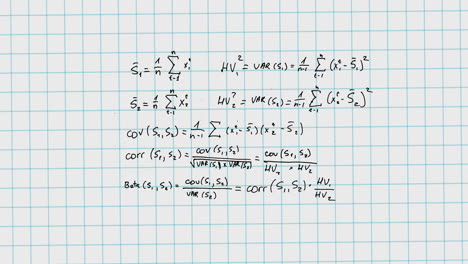 S̄₁ = 1/n Σ_{i=1}^{n} x₁ⁱ    HV₁² = VAR(S₁) = 1/(n-1) Σ_{i=1}^{n} (x₁ⁱ - S̄₁)²
S̄₂ = 1/n Σ_{i=1}^{n} x₂ⁱ    HV₂² = VAR(S₂) = 1/(n-1) Σ_{i=1}^{n} (x₂ⁱ - S̄₂)²
cov(S₁, S₂) = 1/(n-1) Σ (x₁ⁱ - S̄₁)(x₂ⁱ - S̄₂)
corr(S₁, S₂) = cov(S₁, S₂)/√(VAR(S₁) × VAR(S₂)) = cov(S₁, S₂)/(HV₁ × HV₂)
Beta(S₁, S₂) = cov(S₁, S₂)/VAR(S₂) = corr(S₁, S₂) · HV₁/HV₂